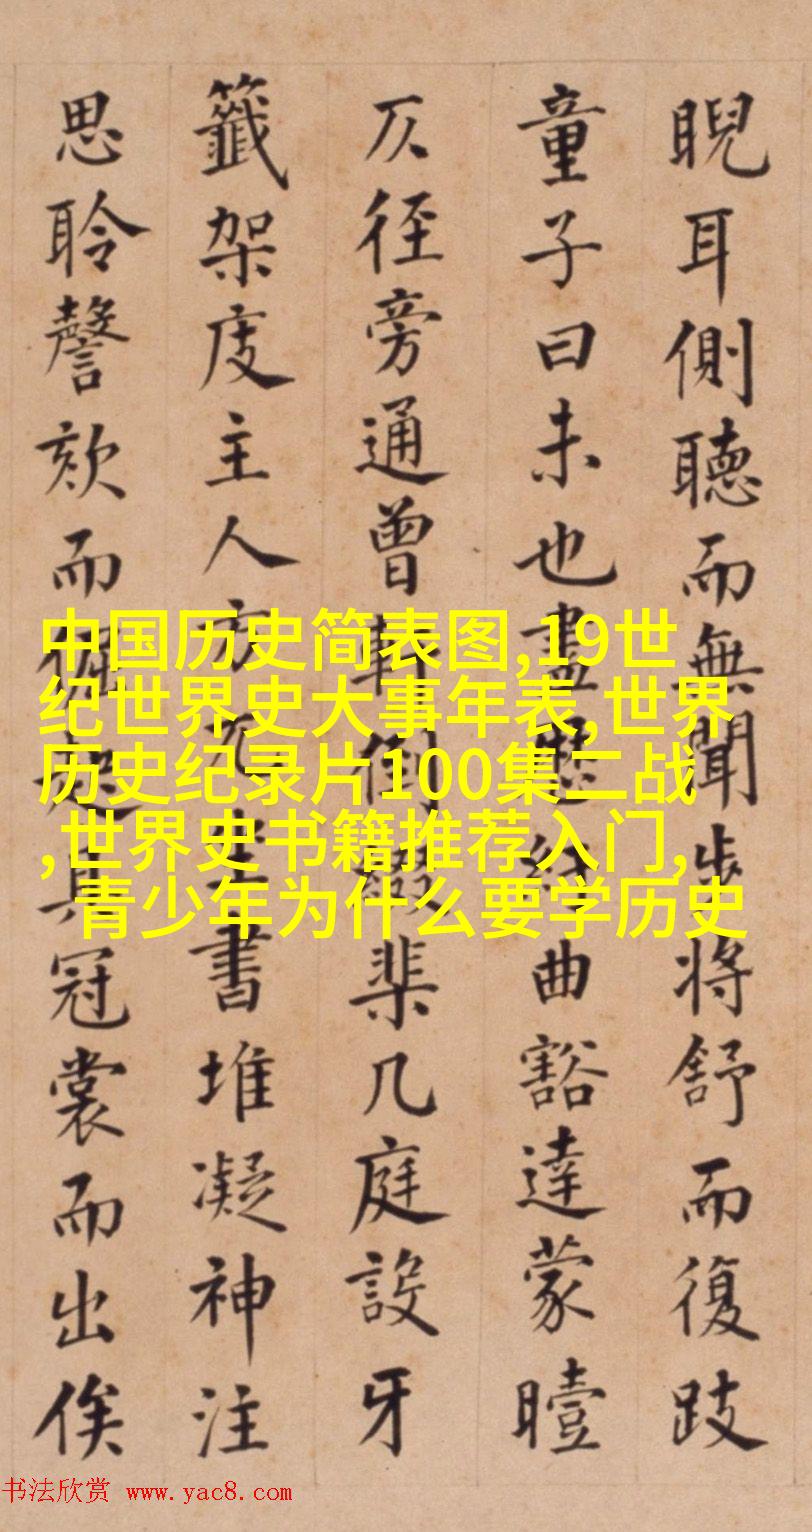 睨耳側聽而無聞步將舒而復跂
童子曰未也盡曲豁達蒙曀
仄徑旁通曾軒倒棐几庭設牙
籤架庋主人方書堆凝神注
思聆謦欬而起具冠裳而出俟
中国历史简表图,19世
纪世界史大事年表,世界
历史纪录片100集二战
,世界史书籍推荐入门,
青少年为什么要学历史
书法欣赏 www.yac8.com